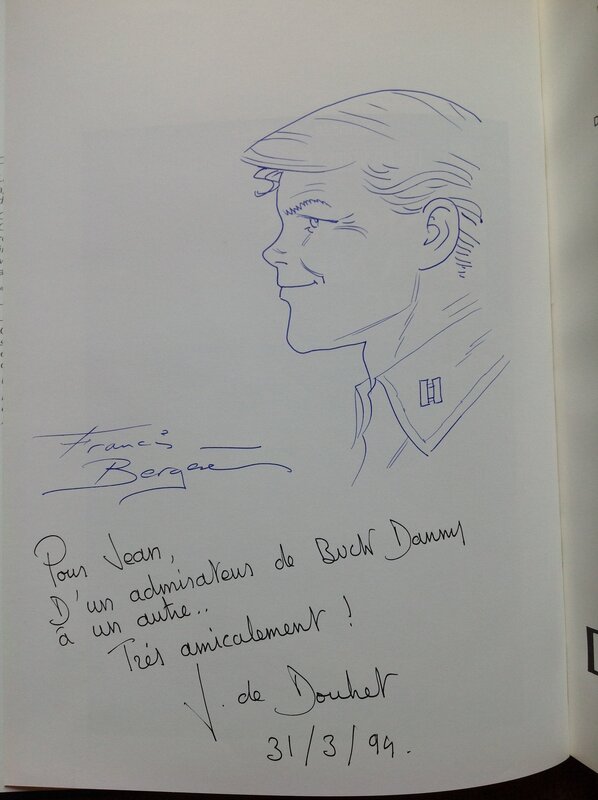 Francis
Bergese
Pour Jean,
D'un admirateur de Buck Danny
à un autre..
Très amicalement !
J. de Douhet
31/3/94.